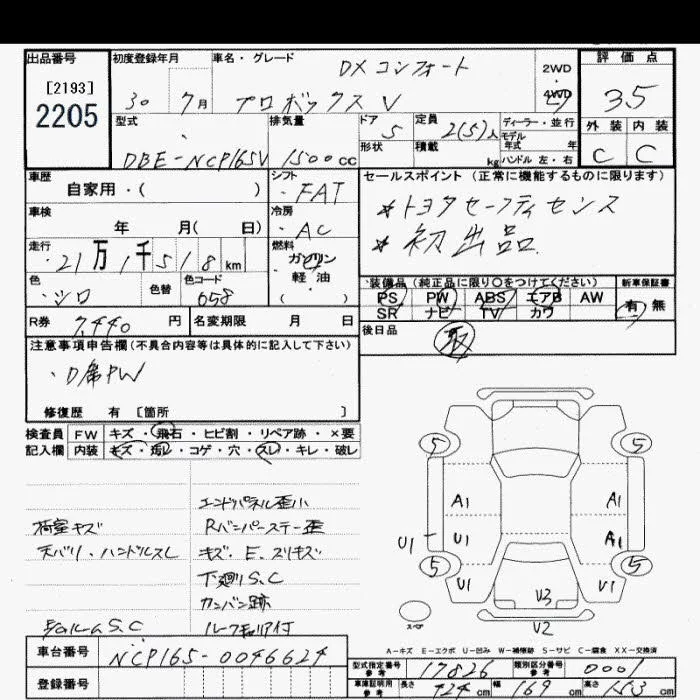 出品番号 初度登録年月 車名・グレード 評価点
[2193] DX コンフォート 2WD
2205 30 7月 プロボックスV 4WD 3.5
型式 排気量 ドア 5 定員 2(5)人 ディーラー・並行 外装 内装
モデル年式 年
DBE-NCP165V 1500cc 形状 積載 kg ハンドル 左・右 C C
車歴 自家用・( ) シフト FAT セールスポイント (正常に機能するものに限ります)
車検 年 月( 日) 冷房 AC *トヨタセーフティセンス
走行 21万1千518km 燃料 ガソリン・軽油( ) *初出品
色 シロ 色替 色コード 058 装備品(純正品に限り○をつけてください) 新車保証書
PS PW ABS エアB AW 有 無
SR ナビ TV カワ
R券 7,440円 名変期限 月 日 後日品 取
注意事項申告欄(不具合内容等は具体的に記入して下さい)
・D席PW
修復歴 有 [箇所 ]
検査員 FW キズ・飛石・ヒビ割・リペア跡・×要
記入欄 内装 キズ・汚レ・コゲ・穴・スレ・キレ・破レ
5 5
エンドパネル歪小
荷室キズ Rバンパーステー歪
天バリ・ハンドルスレ キズ、E、スリキズ
下廻りS.C
カンバン跡
S.C ルーフ
A1 A1
U1 U1 A1
5 5
U1 U3 U1
スペア U2
A-キズ E-エクボ U-凹み W-補修跡 S-サビ C-腐食 XX-交換済
車台番号 NCP165-0046624
登録番号
型式指定番号 参考 17826 類別区分番号 参考 0001
車庫証明用 参考 長さ 424cm 幅 169cm 高さ 153cm